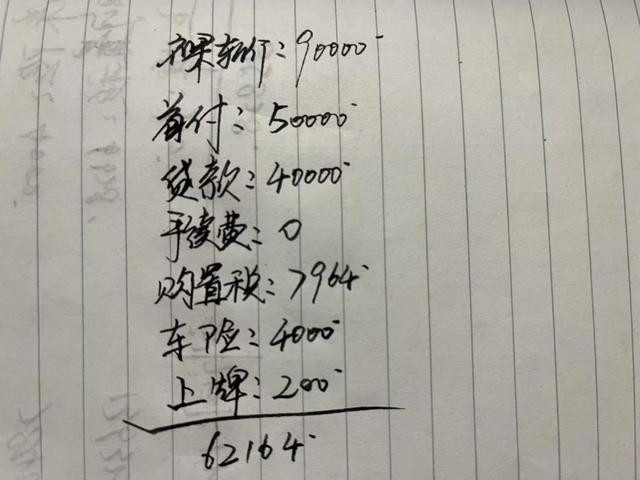 裸车价:90000
首付:50000
贷款:40000
手续费:0
购置税:7964
车险:4000
上牌:200
62164